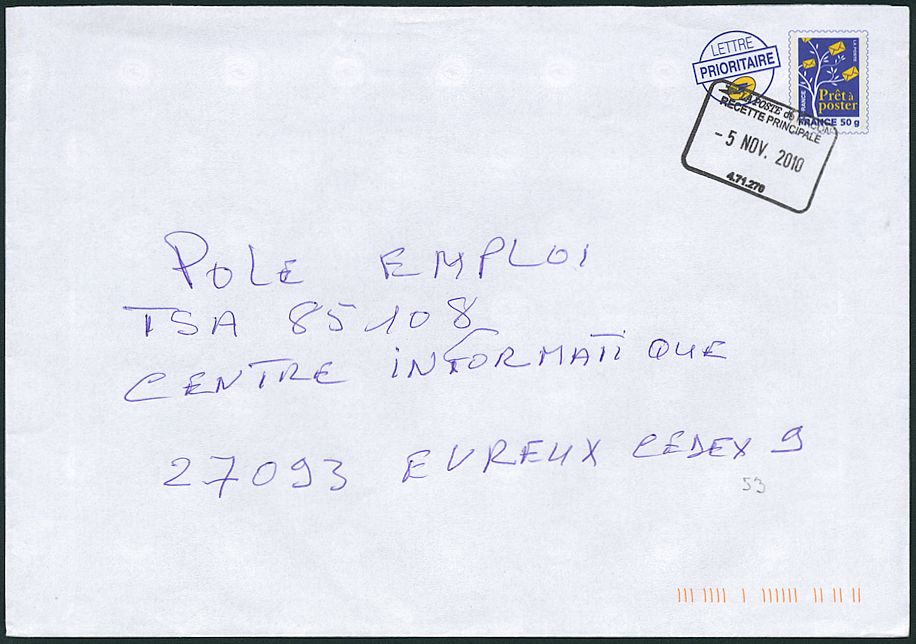 LETTRE
PRIORITAIRE
LA POSTE
FRANCE
Prêt à
poster
FRANCE 50 g
LA POSTE de MACON
RECETTE PRINCIPALE
- 5 NOV. 2010
4.71.270
POLE EMPLOI
TSA 85108
CENTRE INFORMATIQUE
27093 EVREUX CEDEX 9
53